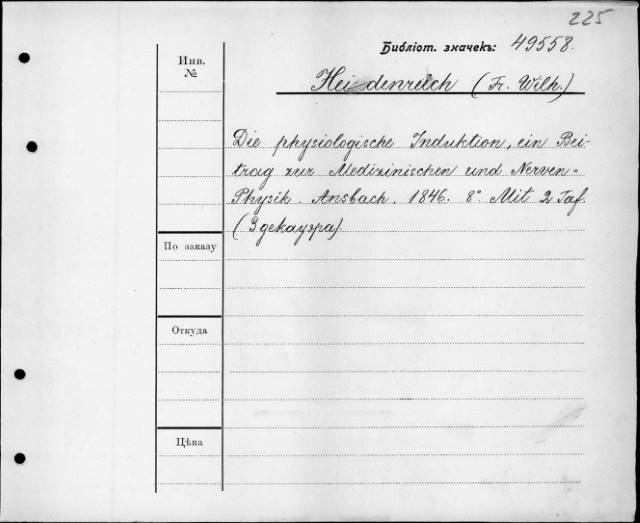 225
Библіот. значекъ: 49558.
Инв.
№
Heidenreich (Fr. Wilh.)
Die physiologische Induktion, ein Bei-
trag zur Medizinischen und Nerven-
Physik. Ansbach. 1846. 8° Mit 2 Taf.
(3 декаурa).
По заказу
Откуда
Цѣна